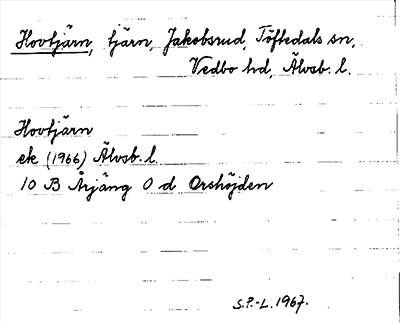 Hovtjärn, tjärn, Jakobsrud, Töftedals sn,
Vedbo hd, Älvsb. l.
Hovtjärn
ek (1966) Älvsb. l.
10 B Årjäng 0 d Orshöjden
S.P.-L. 1967.